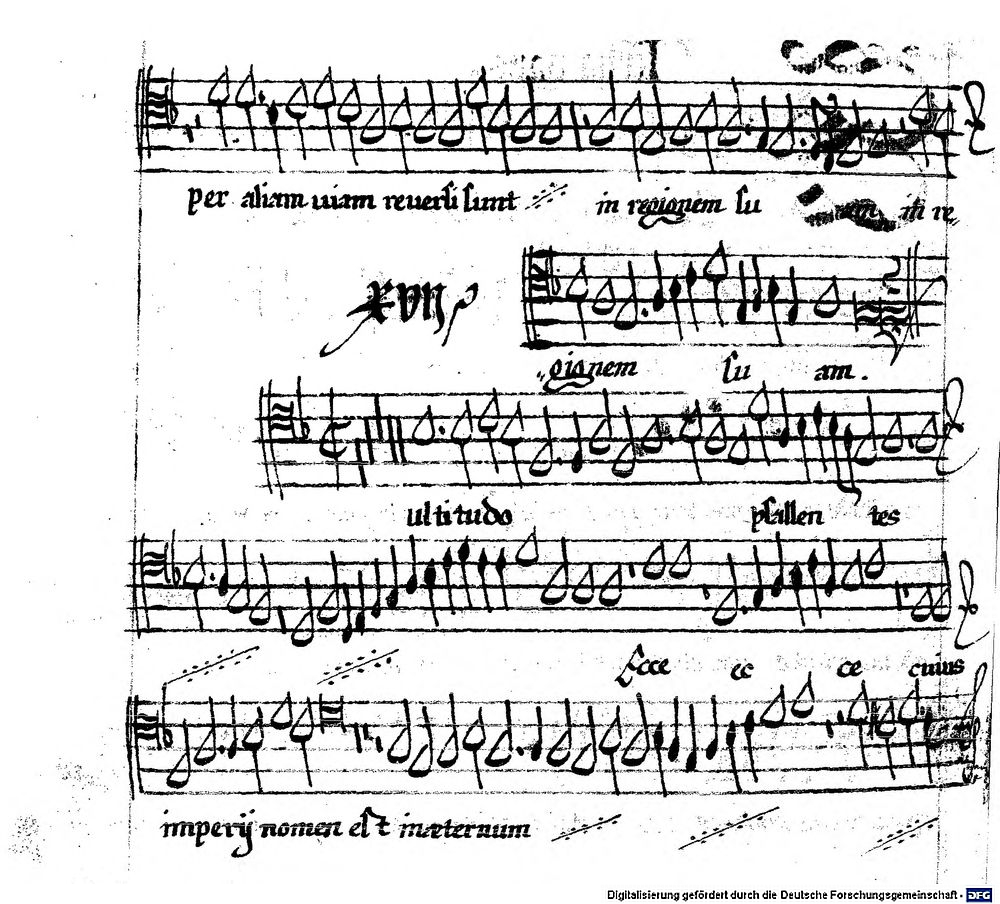 per aliam uiam reuersi sunt in regionem su am in re
XVII
gionem su am.
ultitudo psallen tes
Ecce ec ce cuius
imperij nomen est inæternum
Digitalisierung gefördert durch die Deutsche Forschungsgemeinschaft - DFG